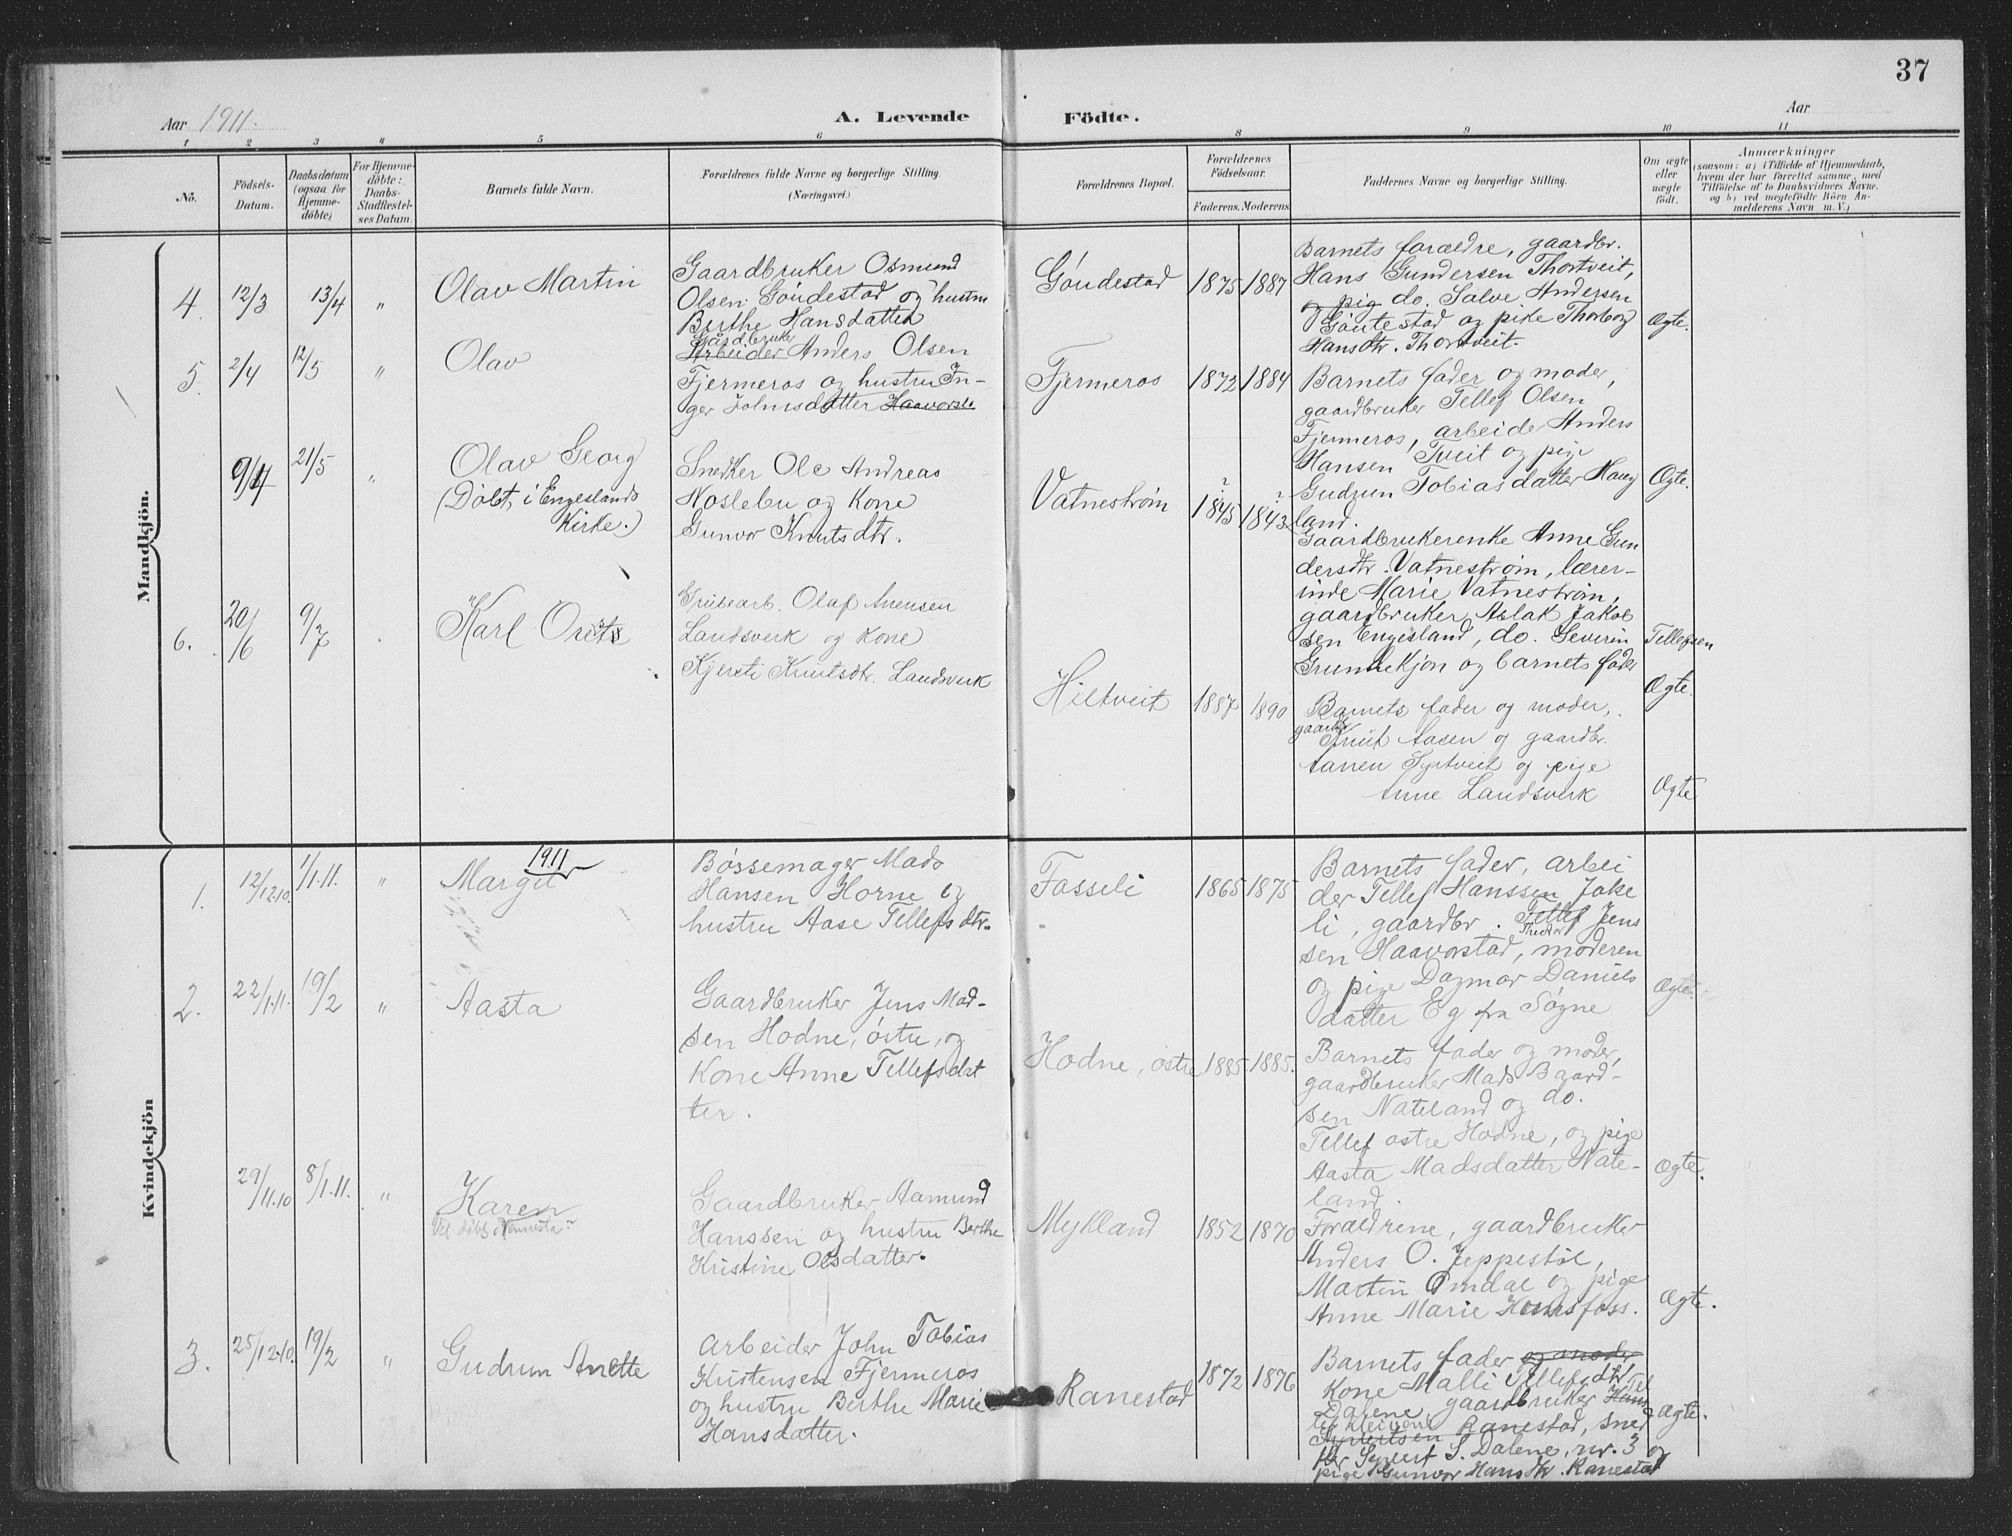 37
Aar 1911.
A. Levende
Födte.
Aar
1
2
3
4
5
6
8
9
10
11
No.
Födsels-
Datum.
Daabsdatum
(ogsaa for
Hjemme-
döbte)
For Hjemme-
döbte:
Daabs-
Stadfæstel-
ses Datum.
Barnets fulde Navn.
Forældrenes fulde Navne og borgerlige Stilling
(Næringsvei)
Forældrenes Bopæl.
Forældrenes
Födselsaar.
Faderens. Moderens
Faddernes Navne og borgerlige Stilling.
Om ægte
eller
uægte
födt.
Anmærkninger
(saasom: a) i Tilfælde af Hjemmedaab,
hvem der har forrettet samme, med
Tilföielse af to Daabsvidners Navne,
og b) ved uægtefödte Börn An-
melderens Navn m. V.)
Mandkjön.
4.
12/3
13/4
"
Olav Martin
Gaardbruker Osmund
Olsen Göudestad og hustru
Berthe Hansdatter
Göudestad
1875
1887
Barnets forældre, gaardbr.
Hans Gundersen Thortveit,
og pig do. Salve Andersen
Göutestad og pike Thorborg
Hansdtr. Thortveit.
Ægte.
5.
2/4
12/5
"
Olav
Gårdbruker
Arbeider Anders Olsen
Fjermeros og hustru In-
ger Johnsdatter Haavorst.
Fjermeros
1872
1884
Barnets fader og moder,
gaardbruker Tellef Olsen
Fjermeros, arbeider Anders
Hansen Tveit og pige
Gudrun Tobiasdatter Haug
land.
Ægte.
9/4
21/5
"
Olav Georg
(Döbt i Engeslands
Kirke.)
Snedker Ole Andreas
Noslebu og Kone
Gunvor Knutsdtr.
Vatneström
?
1845
?
1843
Gaardbrukerenke Anne Gun
dersdtr. Vatneström, lærer-
inde Marie Vatneström,
gaardbruker Aslak Jakob
sen Engesland, do. Severin
Tellefsen
og barnets fader
Ægte.
6.
20/6
9/7
Karl
Grubearb. Olaf
Landsverk og Kone
Kjersti Knutsdtr. Landsverk
Hiltveit
1887
1890
Barnets fader og moder,
gaardb.
Knut Aasen og gaardbr.
og pige
Anne Landsverk
Ægte
Kvindekjön
1911
1.
12/12.10.
1/1.11.
"
Margit
Børssemager Mads
Hansen Horne og
hustru Aase Tellefsdtr.
Fasseli
1865
1875
Barnets fader, arbei
der Tellef Hanssen Joke
li, gaardbr. Tellef Jens
Theodor
sen Haavorstad, moderen
og pige Dagmar Daniels
datter Eg fra Søgne
Ægte.
2.
22/1.11.
19/2
"
Aasta
Gaardbruker Jens Mad-
sen Hodne, östre, og
Kone Anne Tellefsdat
ter.
Hodne, östre
1885
1885.
Barnets fader og moder,
gaardbruker Mads Baard-
sen Nateland og do.
Tellef ostre Hodne, og pige
Aasta Madsdatter Nate-
land.
Ægte.
29/11.10
8/1.11.
"
Karen
Gaardbruker Aamund
Hanssen og hustru Berthe
Kristine Olsdatter.
Mykland
1852
1870
Forældrene, gaardbruker
Anders O. Jeppestöl,
Martin Omdal og pige
Anne Marie Hunsfoss.
Ægte.
3.
25/12.10.
19/2
"
Gudrun Anette
Arbeider John Tobias
Kristensen Fjermeros
og hustru Berthe Marie
Hansdatter.
Ranestad
1872
1876
Barnets fader og moder
Kone Malli Tellefsdtr.
Dalene, gaardbruker Hans
Syvertsen Ranestad, sned
ker Syvert S. Dalene, nr. 3 og
pige Gunvor Hansdtr. Ranestad
Ægte.